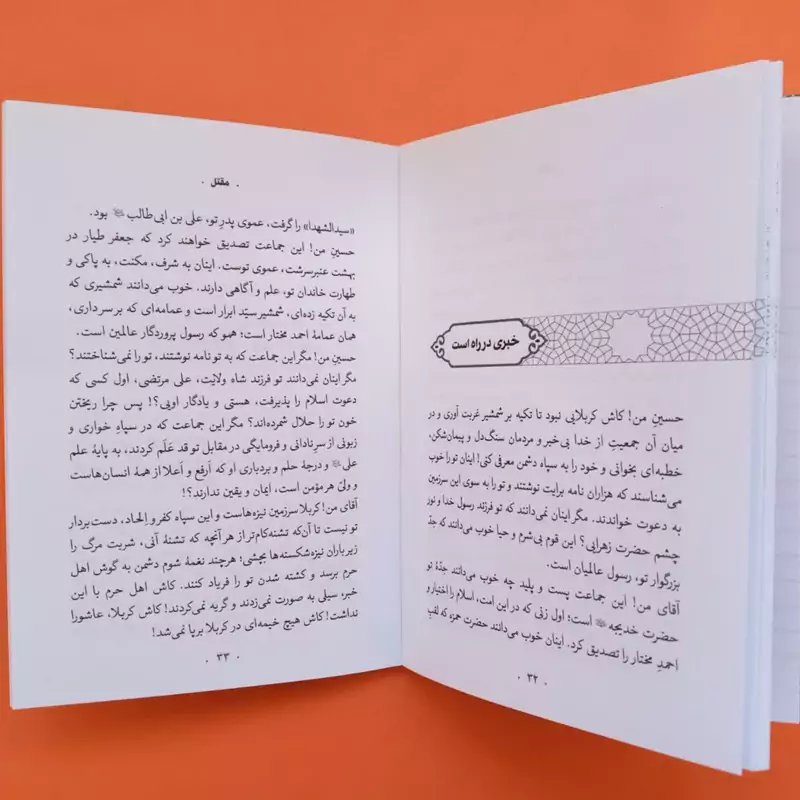 خبری در راه است
حسینِ من! کاش کربلایی نبود تا تکیه بر شمشیر غربت آوری و در
میان آن جمعیتِ از خدا بی‌خبر و مردمان سنگ‌دل و پیمان‌شکن،
خطبه‌ای بخوانی و خود را به سپاه دشمن معرفی کنی! اینان تو را خوب
می‌شناسند که هزاران نامه برایت نوشتند و تو را به سوی این سرزمین
به دعوت خواندند. مگر اینان نمی‌دانند که تو فرزند رسول خدا و نور
چشم حضرت زهرایی؟ این قوم بی‌شرم و حیا خوب می‌دانند که جدّ
بزرگوار تو، رسول عالمیان است.
آقای من! این جماعت پست و پلید چه خوب می‌دانند جدّهٔ تو
حضرت خدیجه است؛ اول زنی که در این امت، اسلام را اختیار و
احمدِ مختار را تصدیق کرد. اینان خوب می‌دانند حضرت حمزه که لقبِ
۰ ۳۲ ۰
۰ مقتل ۰
«سیدالشهدا» را گرفت، عموی پدرِ تو، علی بن ابی‌طالب بود.
حسینِ من! این جماعت تصدیق خواهند کرد که جعفر طیار در
بهشت عنبرسرشت، عموی توست. اینان به شرف، مکنت، به پاکی و
طهارت خاندان تو، علم و آگاهی دارند. خوب می‌دانند شمشیری که
به آن تکیه زده‌ای، شمشیر سیّد ابرار است و عمامه‌ای که بر سر داری،
همان عمامهٔ احمد مختار است؛ همو که رسول پروردگار عالمین است.
حسینِ من! مگر این جماعت که به تو نامه نوشتند، تو را نمی‌شناختند؟
مگر اینان نمی‌دانند تو فرزند شاه ولایت، علی مرتضی، اول کسی که
دعوت اسلام را پذیرفت، هستی و یادگار اویی؟! پس چرا ریختن
خون تو را حلال شمرده‌اند؟ مگر این جماعت که در سپاهِ خواری و
زبونی از سرِ نادانی و فرومایگی در مقابل تو قد عَلَم کردند، به پایهٔ علم
علی و درجهٔ حلم و بردباری او که اَرفع و اَعلا از همهٔ انسان‌هاست
و ولیّ هر مؤمن است، ایمان و یقین ندارند؟!
آقای من! کربلا سرزمین نیزه‌هاست و این سپاه کفر و اِلحاد، دست‌بردار
تو نیست تا آن‌که تشنه‌کام‌تر از هر آنچه که تشنهٔ آنی، شربت مرگ را
زیر بارانِ نیزه‌شکسته‌ها بچشی؛ هرچند نغمهٔ شوم دشمن به گوش اهل
حرم برسد و کشته شدن تو را فریاد کنند. کاش اهل حرم با این
خبر، سیلی به صورت نمی‌زدند و گریه نمی‌کردند! کاش کربلا، عاشورا
نداشت! کاش هیچ خیمه‌ای در کربلا برپا نمی‌شد!
۰ ۳۳ ۰